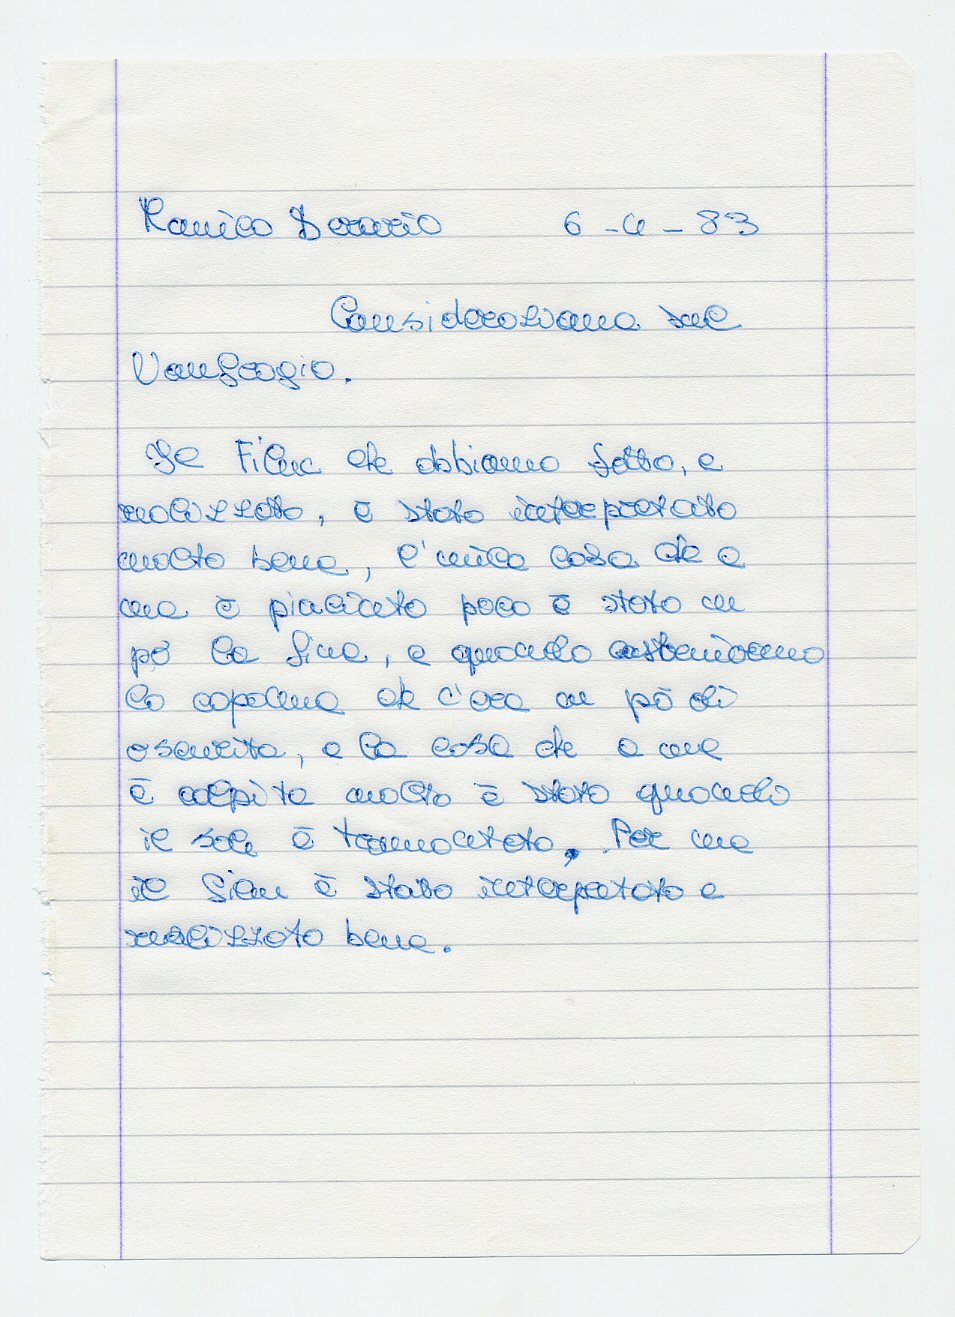 6 - 4 - 83
Considerazione sul
Naufragio.
Il Film che abbiamo fatto, e
realizzato, è stato interpretato
molto bene, l'unica cosa che a
me è piaciuto poco è stato un
pò la fine, e quando
la capanna che c'era un pò di
oscurita, e la cosa che a me
è colpita molto è stato quando
il sole è tramontato. Per me
il film è stato interpretato e
realizzato bene.